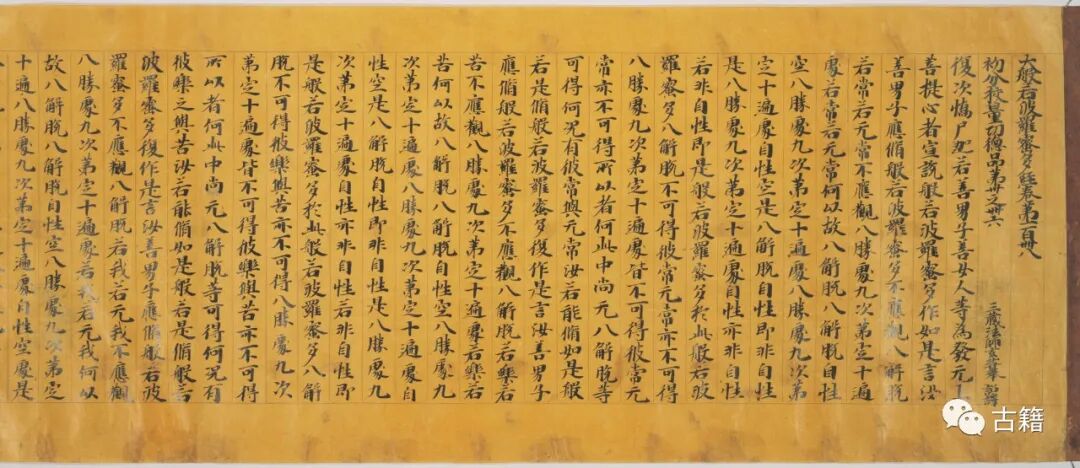 大般若波羅蜜多經卷第一百卌八
初分校量功德品第卅之卌六 三藏法師玄奘奉 詔譯
復次憍尸迦若善男子善女人等為發无上
菩提心者宣說般若波羅蜜多作如是言汝
善男子應脩般若波羅蜜多不應觀八解脫
若常若无常不應觀八勝處九次第定十遍
處若常若无常何以故八解脫八解脫自性
空八勝處九次第定十遍處八勝處九次第
定十遍處自性空是八解脫自性即非自性
是八勝處九次第定十遍處自性亦非自性
若非自性即是般若波羅蜜多於此般若波
羅蜜多八解脫不可得彼常无常亦不可得
八勝處九次第定十遍處皆不可得彼常无
常亦不可得所以者何此中尚无八解脫等
可得何況有彼常與无常汝若能脩如是般
若是脩般若波羅蜜多復作是言汝善男子
應脩般若波羅蜜多不應觀八解脫若樂若
苦不應觀八勝處九次第定十遍處若樂若
苦何以故八解脫八解脫自性空八勝處九
次第定十遍處八勝處九次第定十遍處自
性空是八解脫自性即非自性是八勝處九
次第定十遍處自性亦非自性若非自性即
是般若波羅蜜多於此般若波羅蜜多八解
脫不可得彼樂與苦亦不可得八勝處九次
第定十遍處皆不可得彼樂與苦亦不可得
所以者何此中尚无八解脫等可得何況有
彼樂之與苦汝若能脩如是般若是脩般若
波羅蜜多復作是言汝善男子應脩般若波
羅蜜多不應觀八解脫若我若无我不應觀
八勝處九次第定十遍處若我若无我何以
故八解脫八解脫自性空八勝處九次第定
十遍處八勝處九次第定十遍處自性空是
古籍